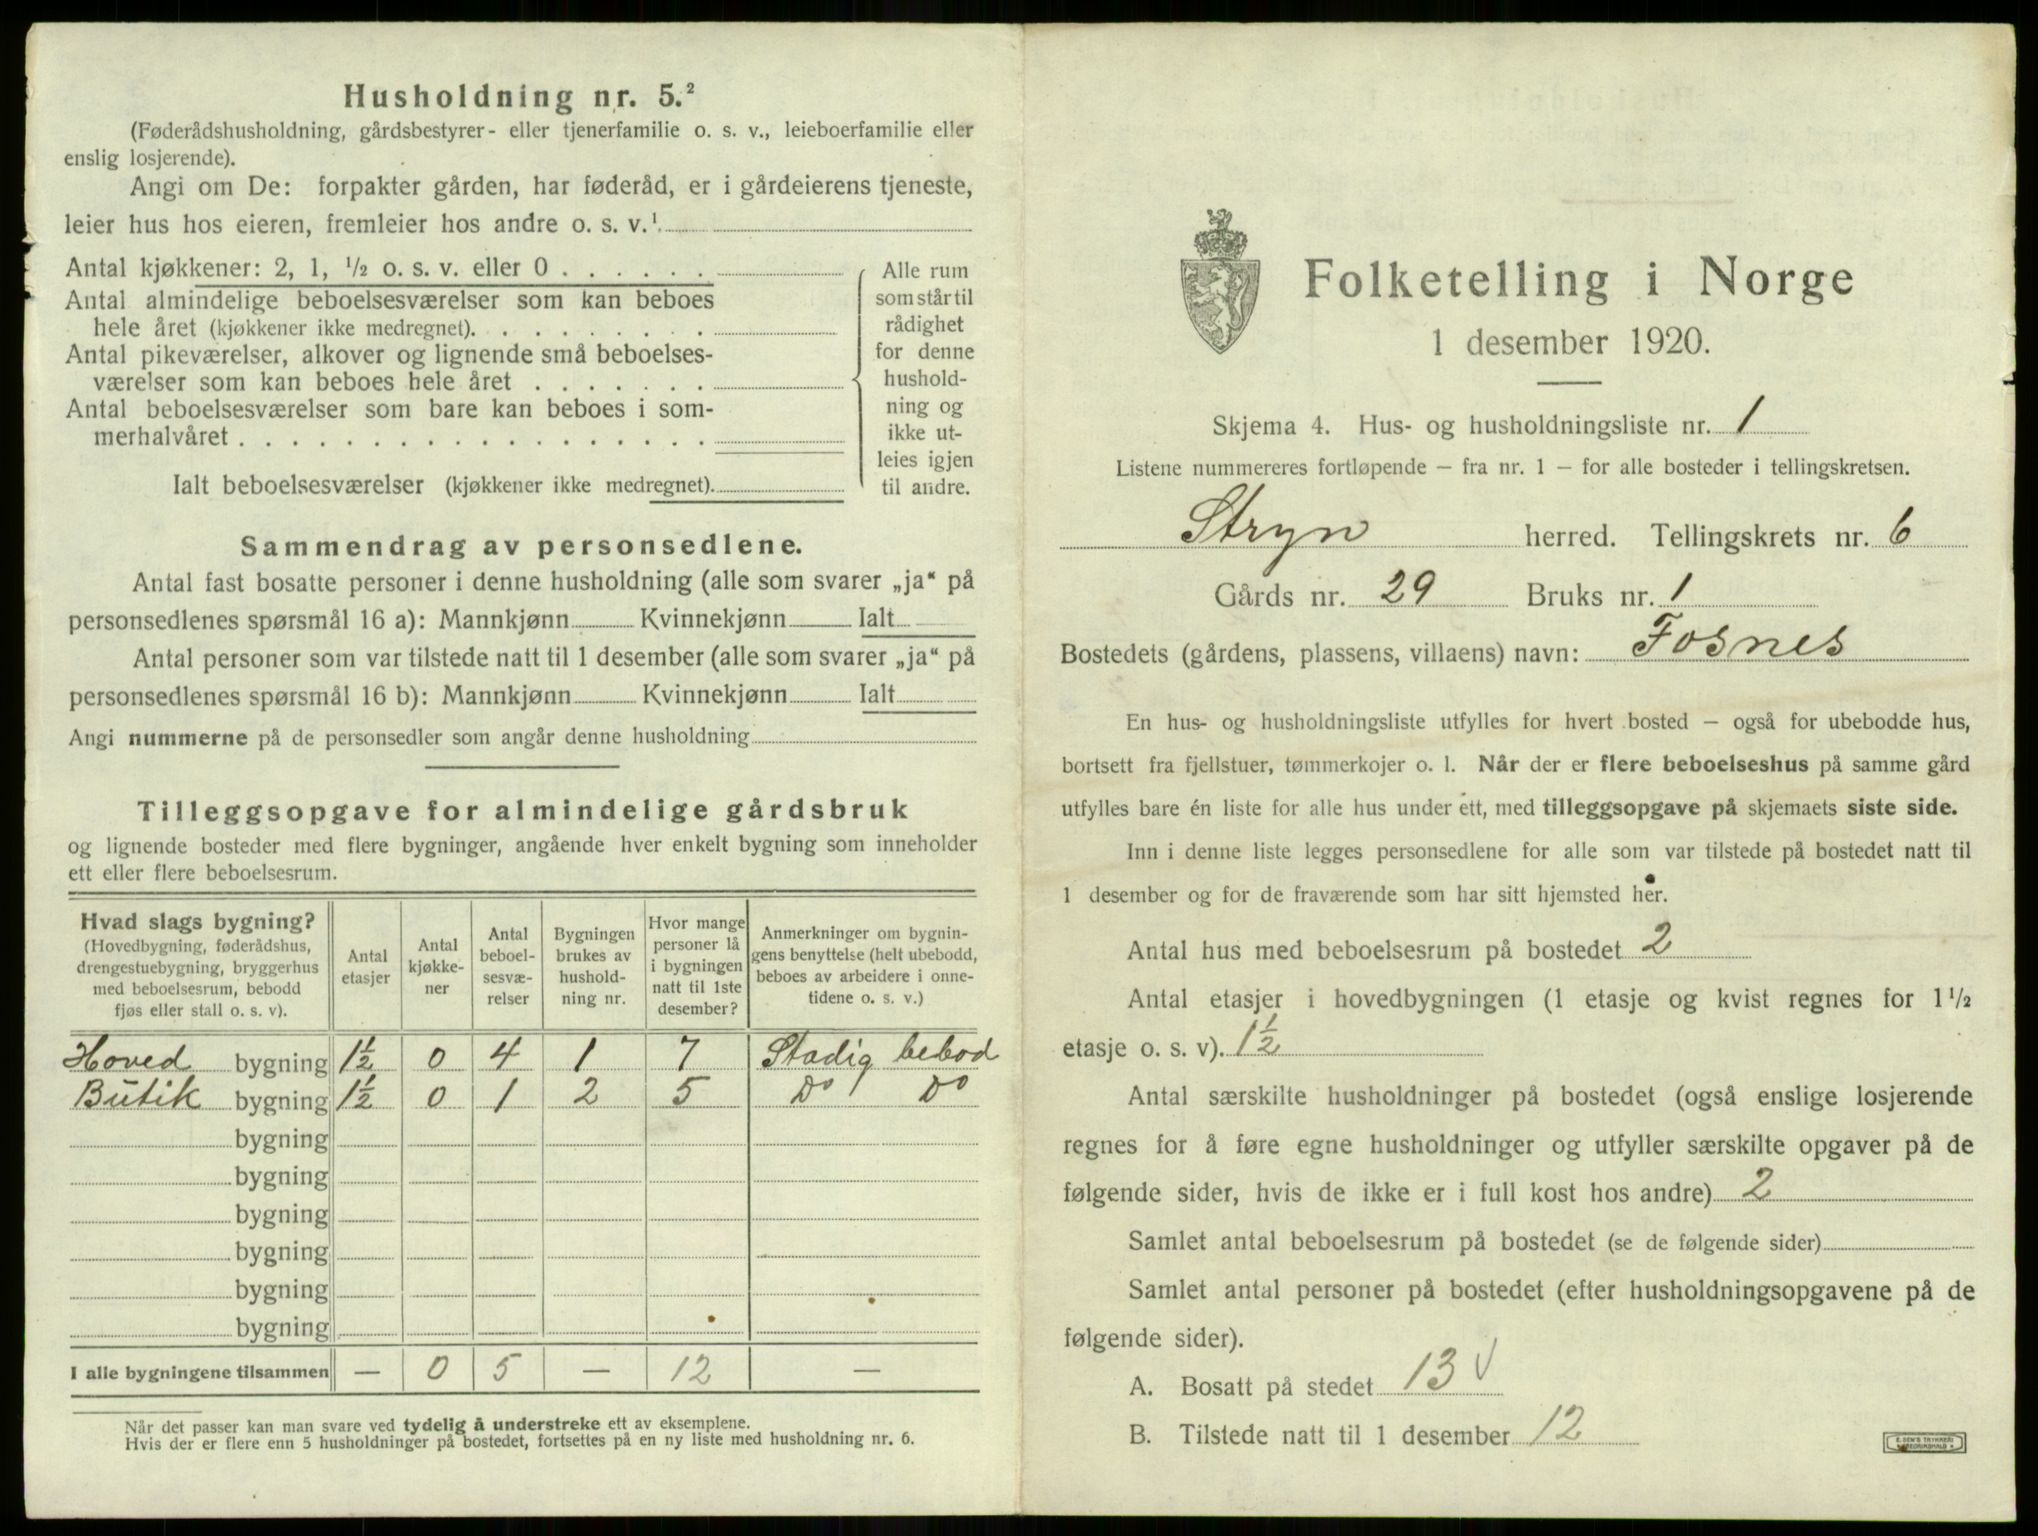 Husholdning nr. 5.²
(Føderådshusholdning, gårdsbestyrer- eller tjenerfamilie o. s. v., leieboerfamilie eller
enslig losjerende).
Angi om De: forpakter gården, har føderåd, er i gårdeierens tjeneste,
leier hus hos eieren, fremleier hos andre o. s. v.¹
Antal kjøkkener: 2, 1, ½ o. s. v. eller 0 . . . . . .
Antal almindelige beboelsesværelser som kan beboes
hele året (kjøkkener ikke medregnet). . . . . . . . .
Antal pikeværelser, alkover og lignende små beboelses-
værelser som kan beboes hele året . . . . . . .
Antal beboelsesværelser som bare kan beboes i som-
merhalvåret . . . . . . . . . . . . . . . . . .
Ialt beboelsesværelser (kjøkkener ikke medregnet).
Alle rum
som står til
rådighet
for denne
hushold-
ning og
ikke ut-
leies igjen
til andre.
Sammendrag av personsedlene.
Antal fast bosatte personer i denne husholdning (alle som svarer „ja“ på
personsedlenes spørsmål 16 a): Mannkjønn Kvinnekjønn Ialt
Antal personer som var tilstede natt til 1 desember (alle som svarer „ja“ på
personsedlenes spørsmål 16 b): Mannkjønn Kvinnekjønn Ialt
Angi nummerne på de personsedler som angår denne husholdning
Tilleggsopgave for almindelige gårdsbruk
og lignende bosteder med flere bygninger, angående hver enkelt bygning som inneholder
ett eller flere beboelsesrum.
Hvad slags bygning?
(Hovedbygning, føderådshus,
drengestuebygning, bryggerhus
med beboelsesrum, bebodd
fjøs eller stall o. s. v).
Antal
etasjer
Antal
kjøkke-
ner
Antal
beboel-
sesvæ-
relser
Bygningen
brukes av
hushold-
ning nr.
Hvor mange
personer lå
i bygningen
natt til 1ste
desember?
Anmerkninger om bygnin-
gens benyttelse (helt ubebodd,
beboes av arbeidere i onne-
tidene o. s. v.)
Hoved bygning 1½ 0 4 1 7 Stadig bebod
Butik bygning 1½ 0 1 2 5 Do Do
bygning
bygning
bygning
bygning
bygning
bygning
I alle bygningene tilsammen — 0 5 — 12 —
Når det passer kan man svare ved tydelig å understreke ett av eksemplene.
Hvis der er flere enn 5 husholdninger på bostedet, fortsettes på en ny liste med husholdning nr. 6.
Folketelling i Norge
1 desember 1920.
Skjema 4. Hus- og husholdningsliste nr. 1
Listene nummereres fortløpende – fra nr. 1 – for alle bosteder i tellingskretsen.
Stryn herred. Tellingskrets nr. 6
Gårds nr. 29 Bruks nr. 1
Bostedets (gårdens, plassens, villaens) navn: Fosnes
En hus- og husholdningsliste utfylles for hvert bosted – også for ubebodde hus,
bortsett fra fjellstuer, tømmerkojer o. l. Når der er flere beboelseshus på samme gård
utfylles bare én liste for alle hus under ett, med tilleggsopgave på skjemaets siste side.
Inn i denne liste legges personsedlene for alle som var tilstede på bostedet natt til
1 desember og for de fraværende som har sitt hjemsted her.
Antal hus med beboelsesrum på bostedet 2
Antal etasjer i hovedbygningen (1 etasje og kvist regnes for 1½
etasje o. s. v). 1½
Antal særskilte husholdninger på bostedet (også enslige losjerende
regnes for å føre egne husholdninger og utfyller særskilte opgaver på de
følgende sider, hvis de ikke er i full kost hos andre) 2
Samlet antal beboelsesrum på bostedet (se de følgende sider)
Samlet antal personer på bostedet (efter husholdningsopgavene på de
følgende sider).
A. Bosatt på stedet 13 √
B. Tilstede natt til 1 desember 12